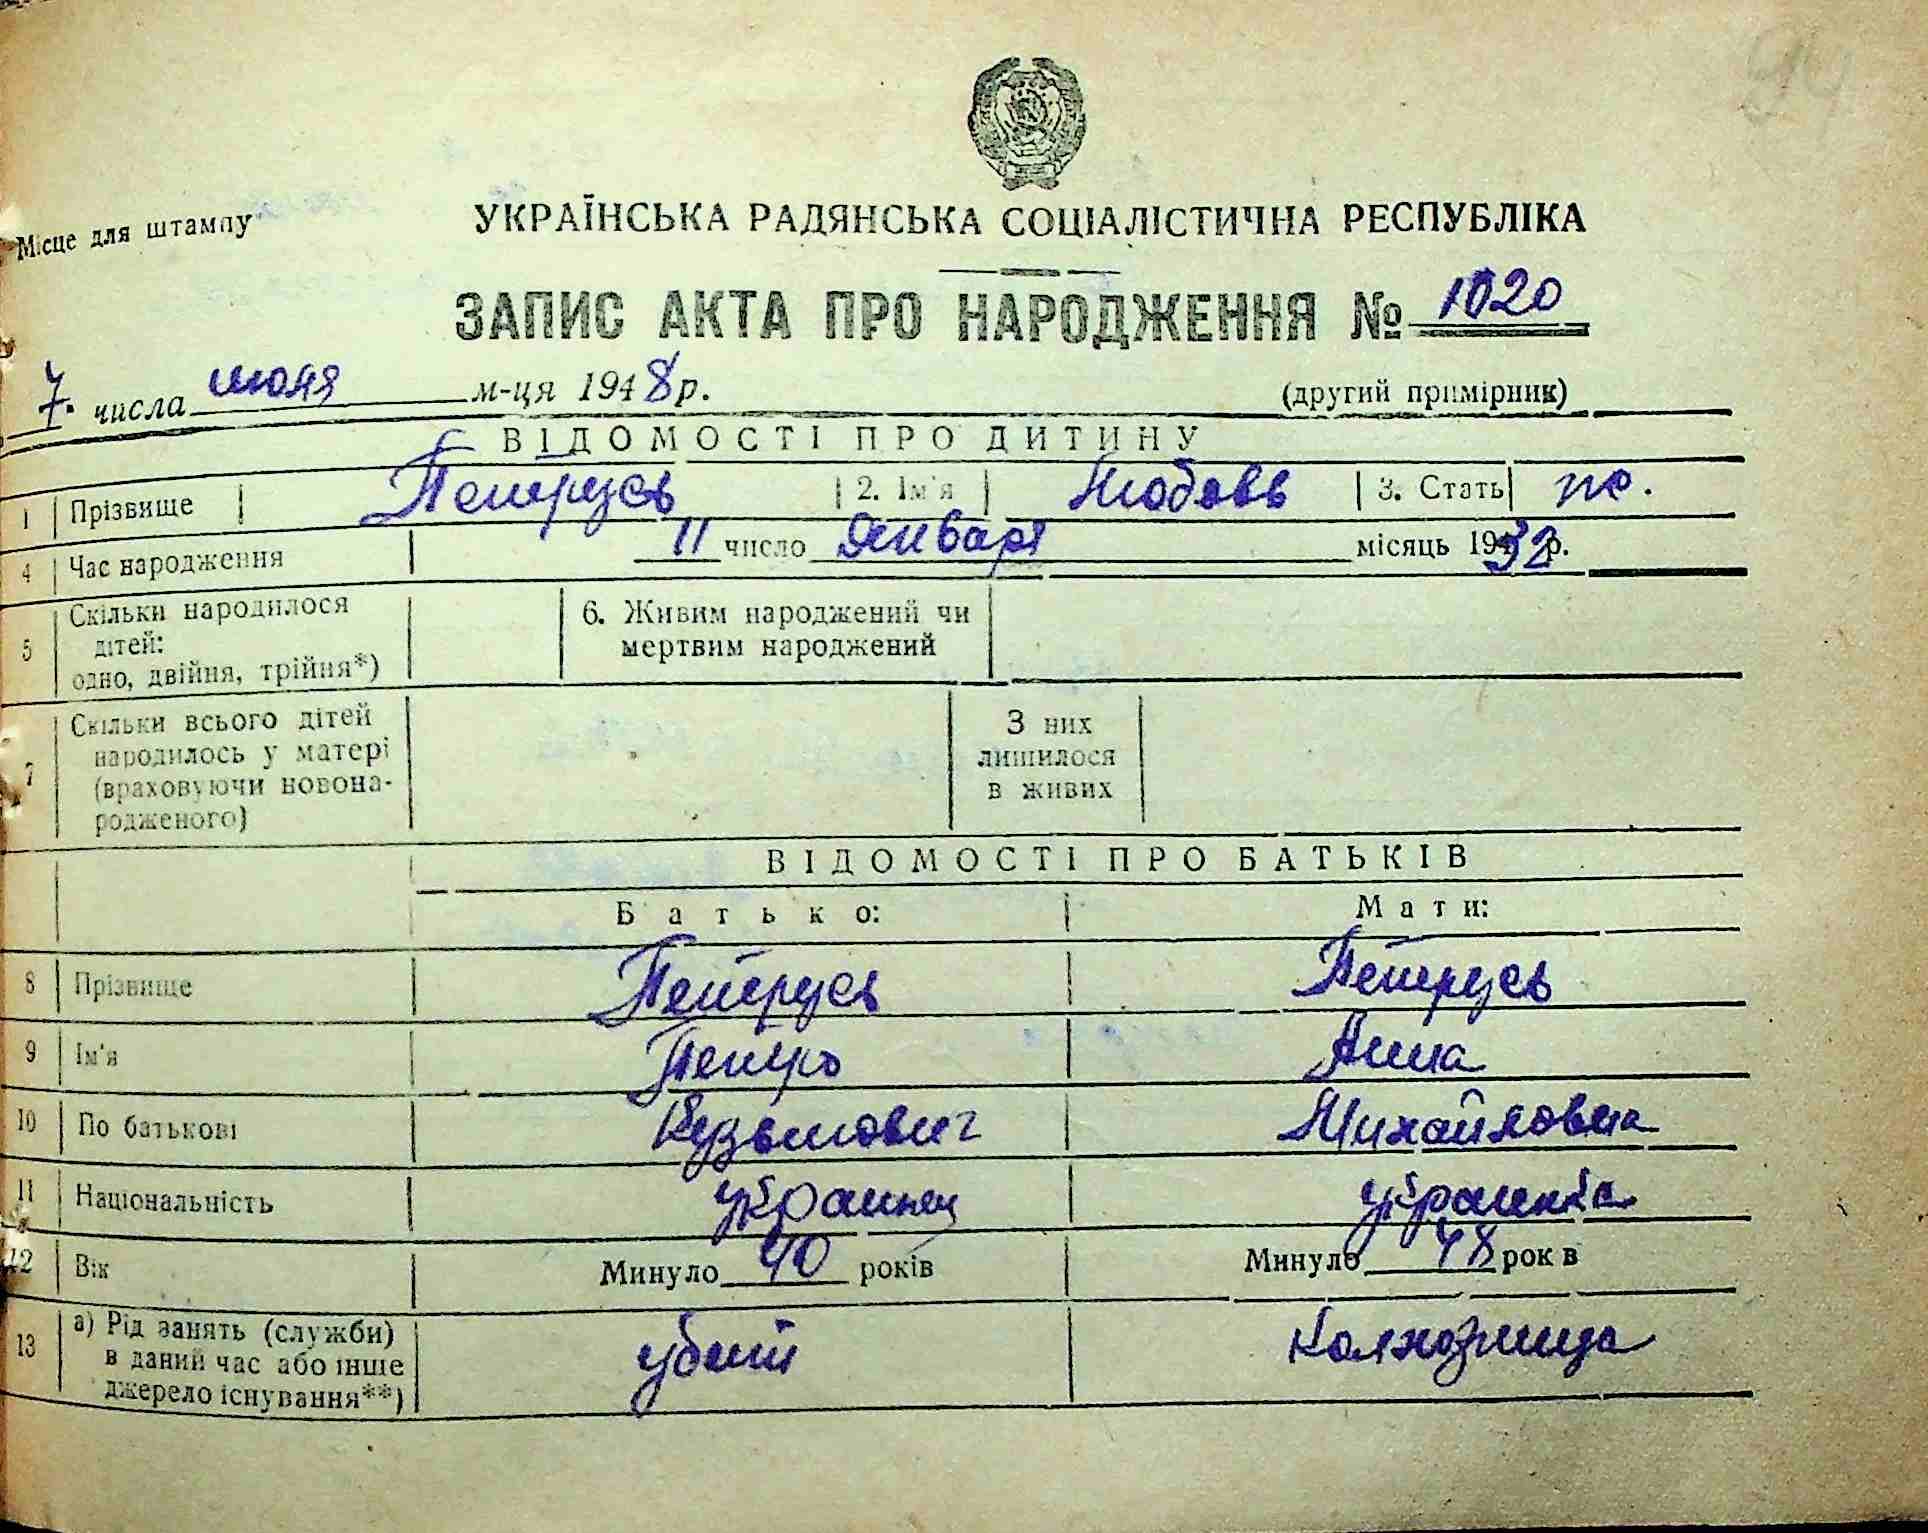 Місце для штампу
УКРАЇНСЬКА РАДЯНСЬКА СОЦІАЛІСТИЧНА РЕСПУБЛІКА
ЗАПИС АКТА ПРО НАРОДЖЕННЯ № 1020
7. числа июля м-ця 1948 р.
(другий примірник)
ВІДОМОСТІ ПРО ДИТИНУ
1 Прізвище Петрусь 2. Ім'я Любовь 3. Стать ж.
4 Час народження 11 число Января місяць 1932 р.
5 Скільки народилося дітей: одно, двійня, трійня*)
6. Живим народжений чи мертвим народжений
7 Скільки всього дітей народилось у матері (враховуючи новонародженого)
З них лишилося в живих
ВІДОМОСТІ ПРО БАТЬКІВ
Батько: Мати:
8 Прізвище Петрусь Петрусь
9 Ім'я Петро Анна
10 По батькові Кузьмович Михайловна
11 Національність украинец украинка
12 Вік Минуло 40 років Минуло 48 рок в
13 а) Рід занять (служби) в даний час або інше джерело існування**) убит Колхозница